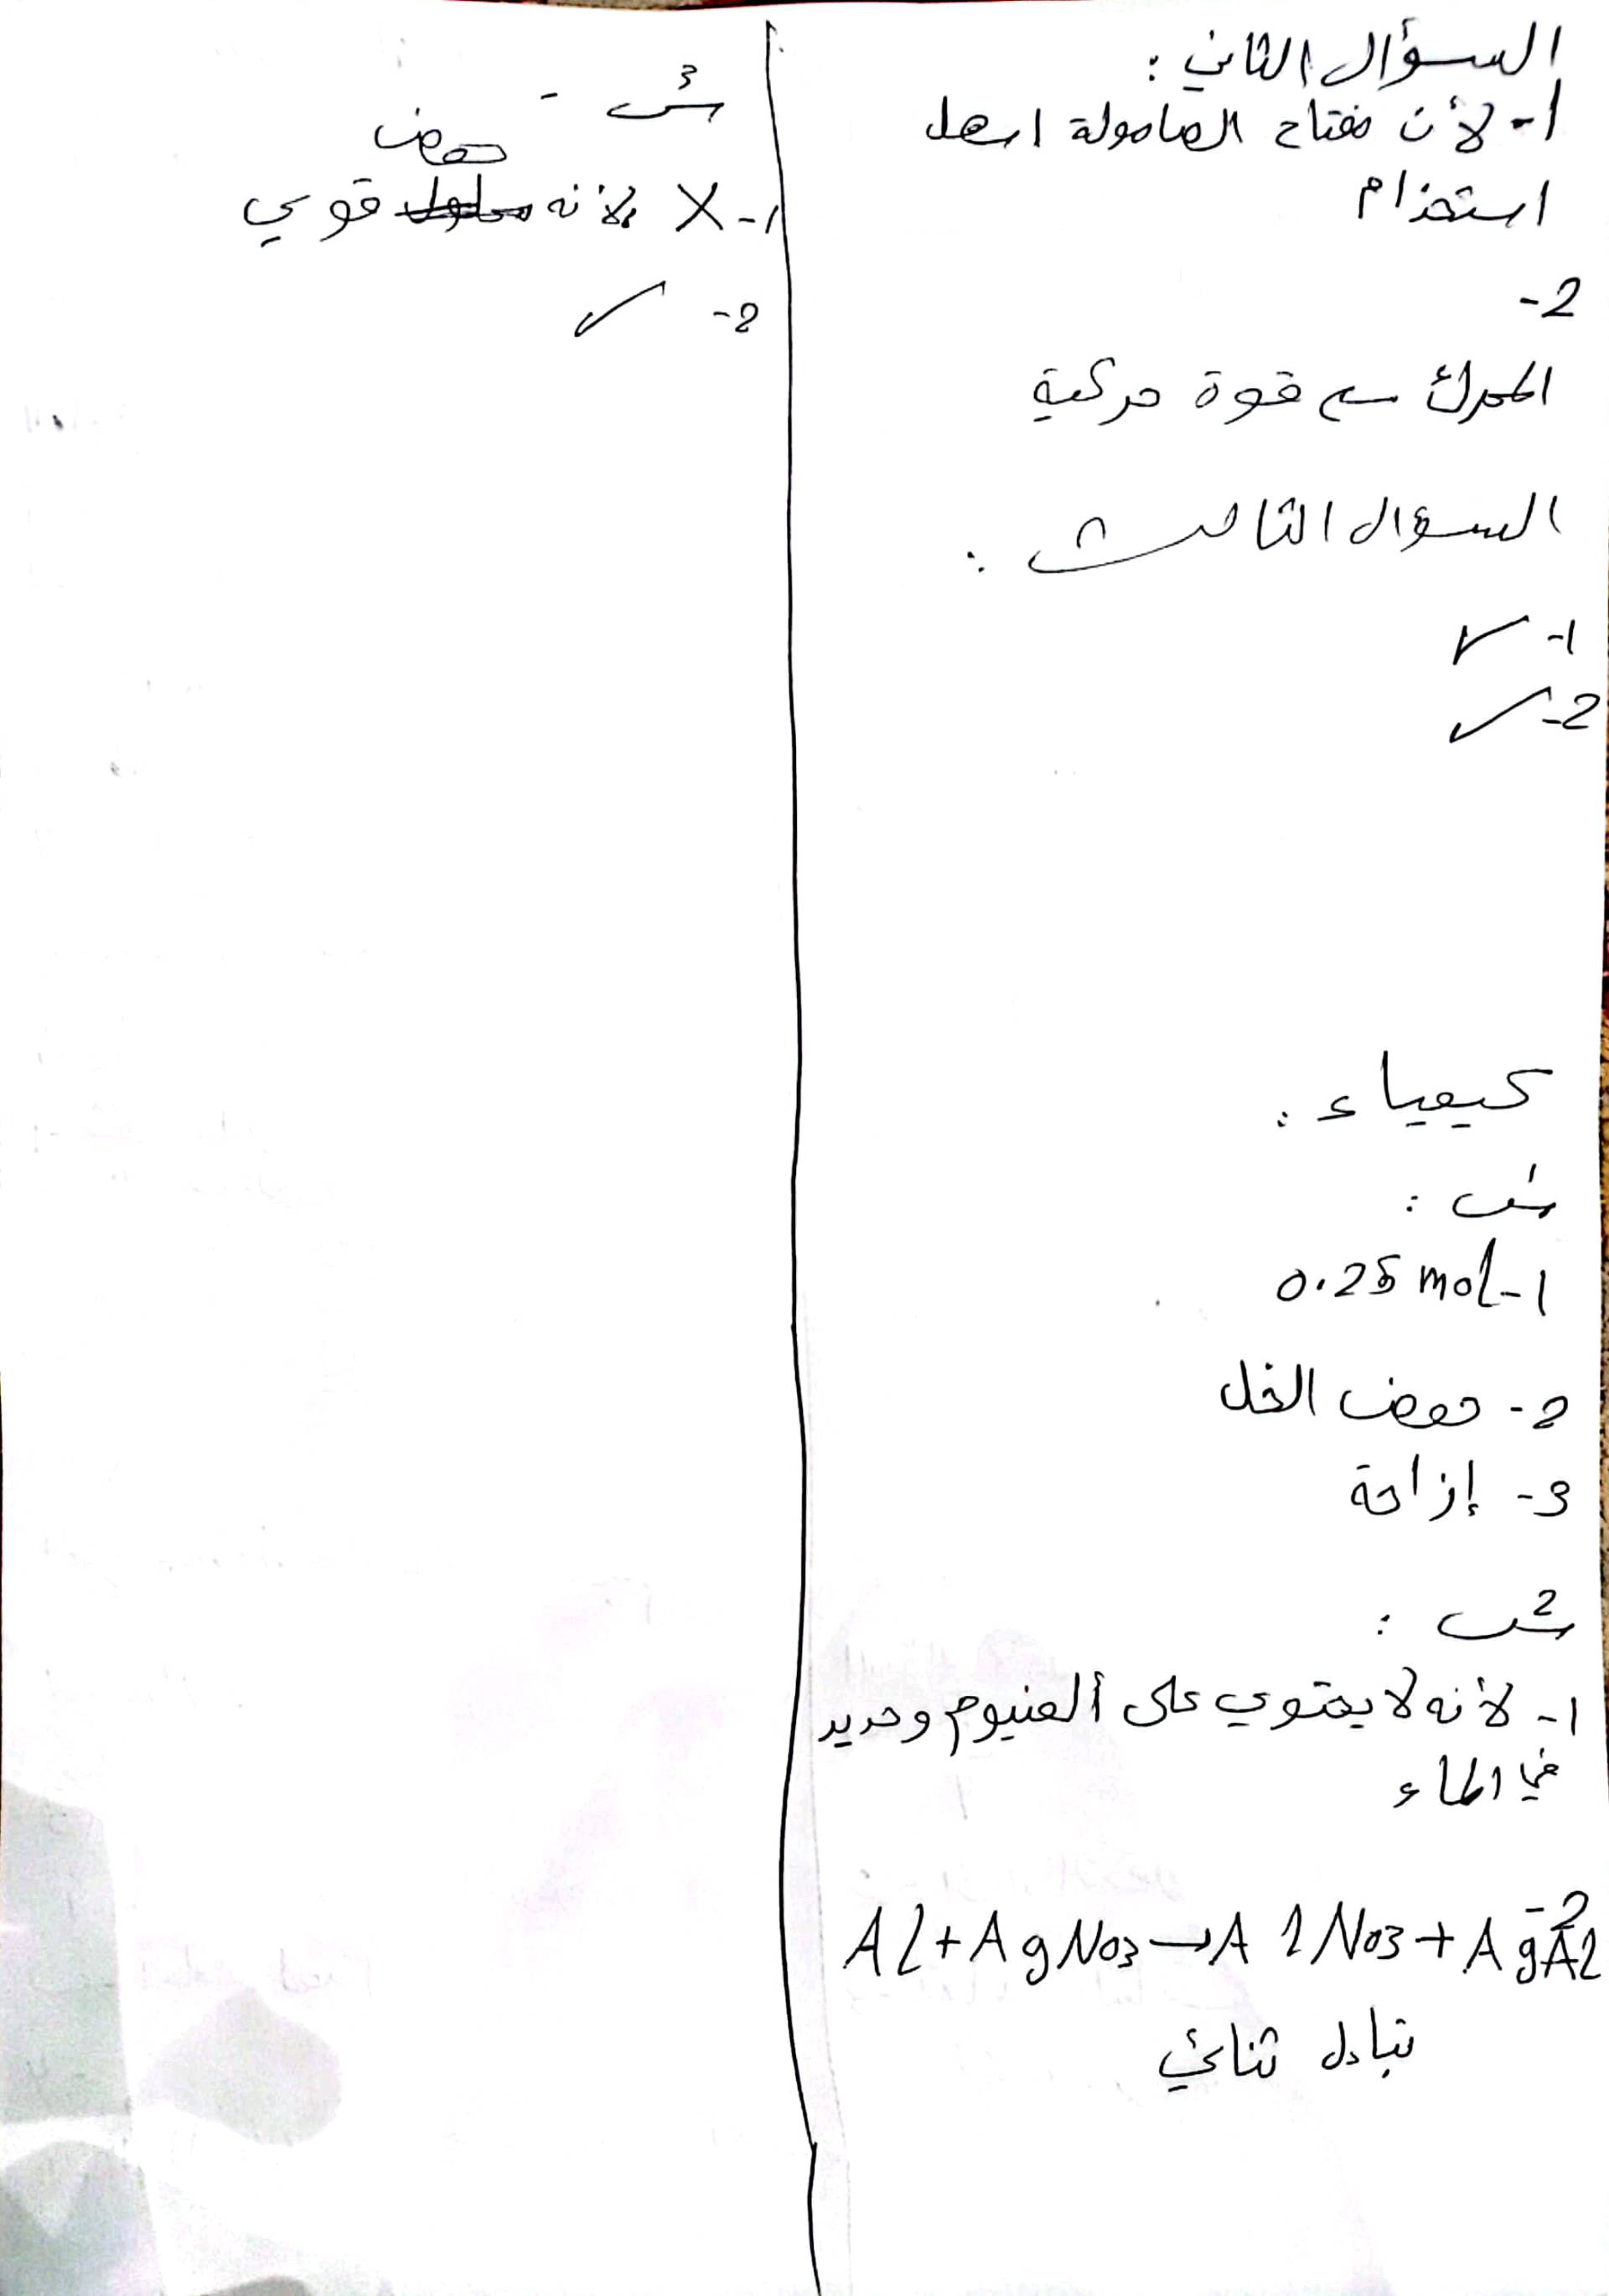 السؤال الثاني :
1- لأن مفتاح الصامولة اسهل
استخدام
2-
المحرك سم قوة حركية
السؤال الثالث :
1- ✓
2- ✓
كيمياء :
س1 :
1- 0.25 mol
2- حمض الخل
3- إزاحة
س2 :
1- لأنه لا يحتوي على ألمنيوم وحديد
في الماء
2-
Al + AgNo3 → AlNo3 + AgAl
تبادل ثنائي
س3 -
1- X لأنه حمض قوي
2- ✓